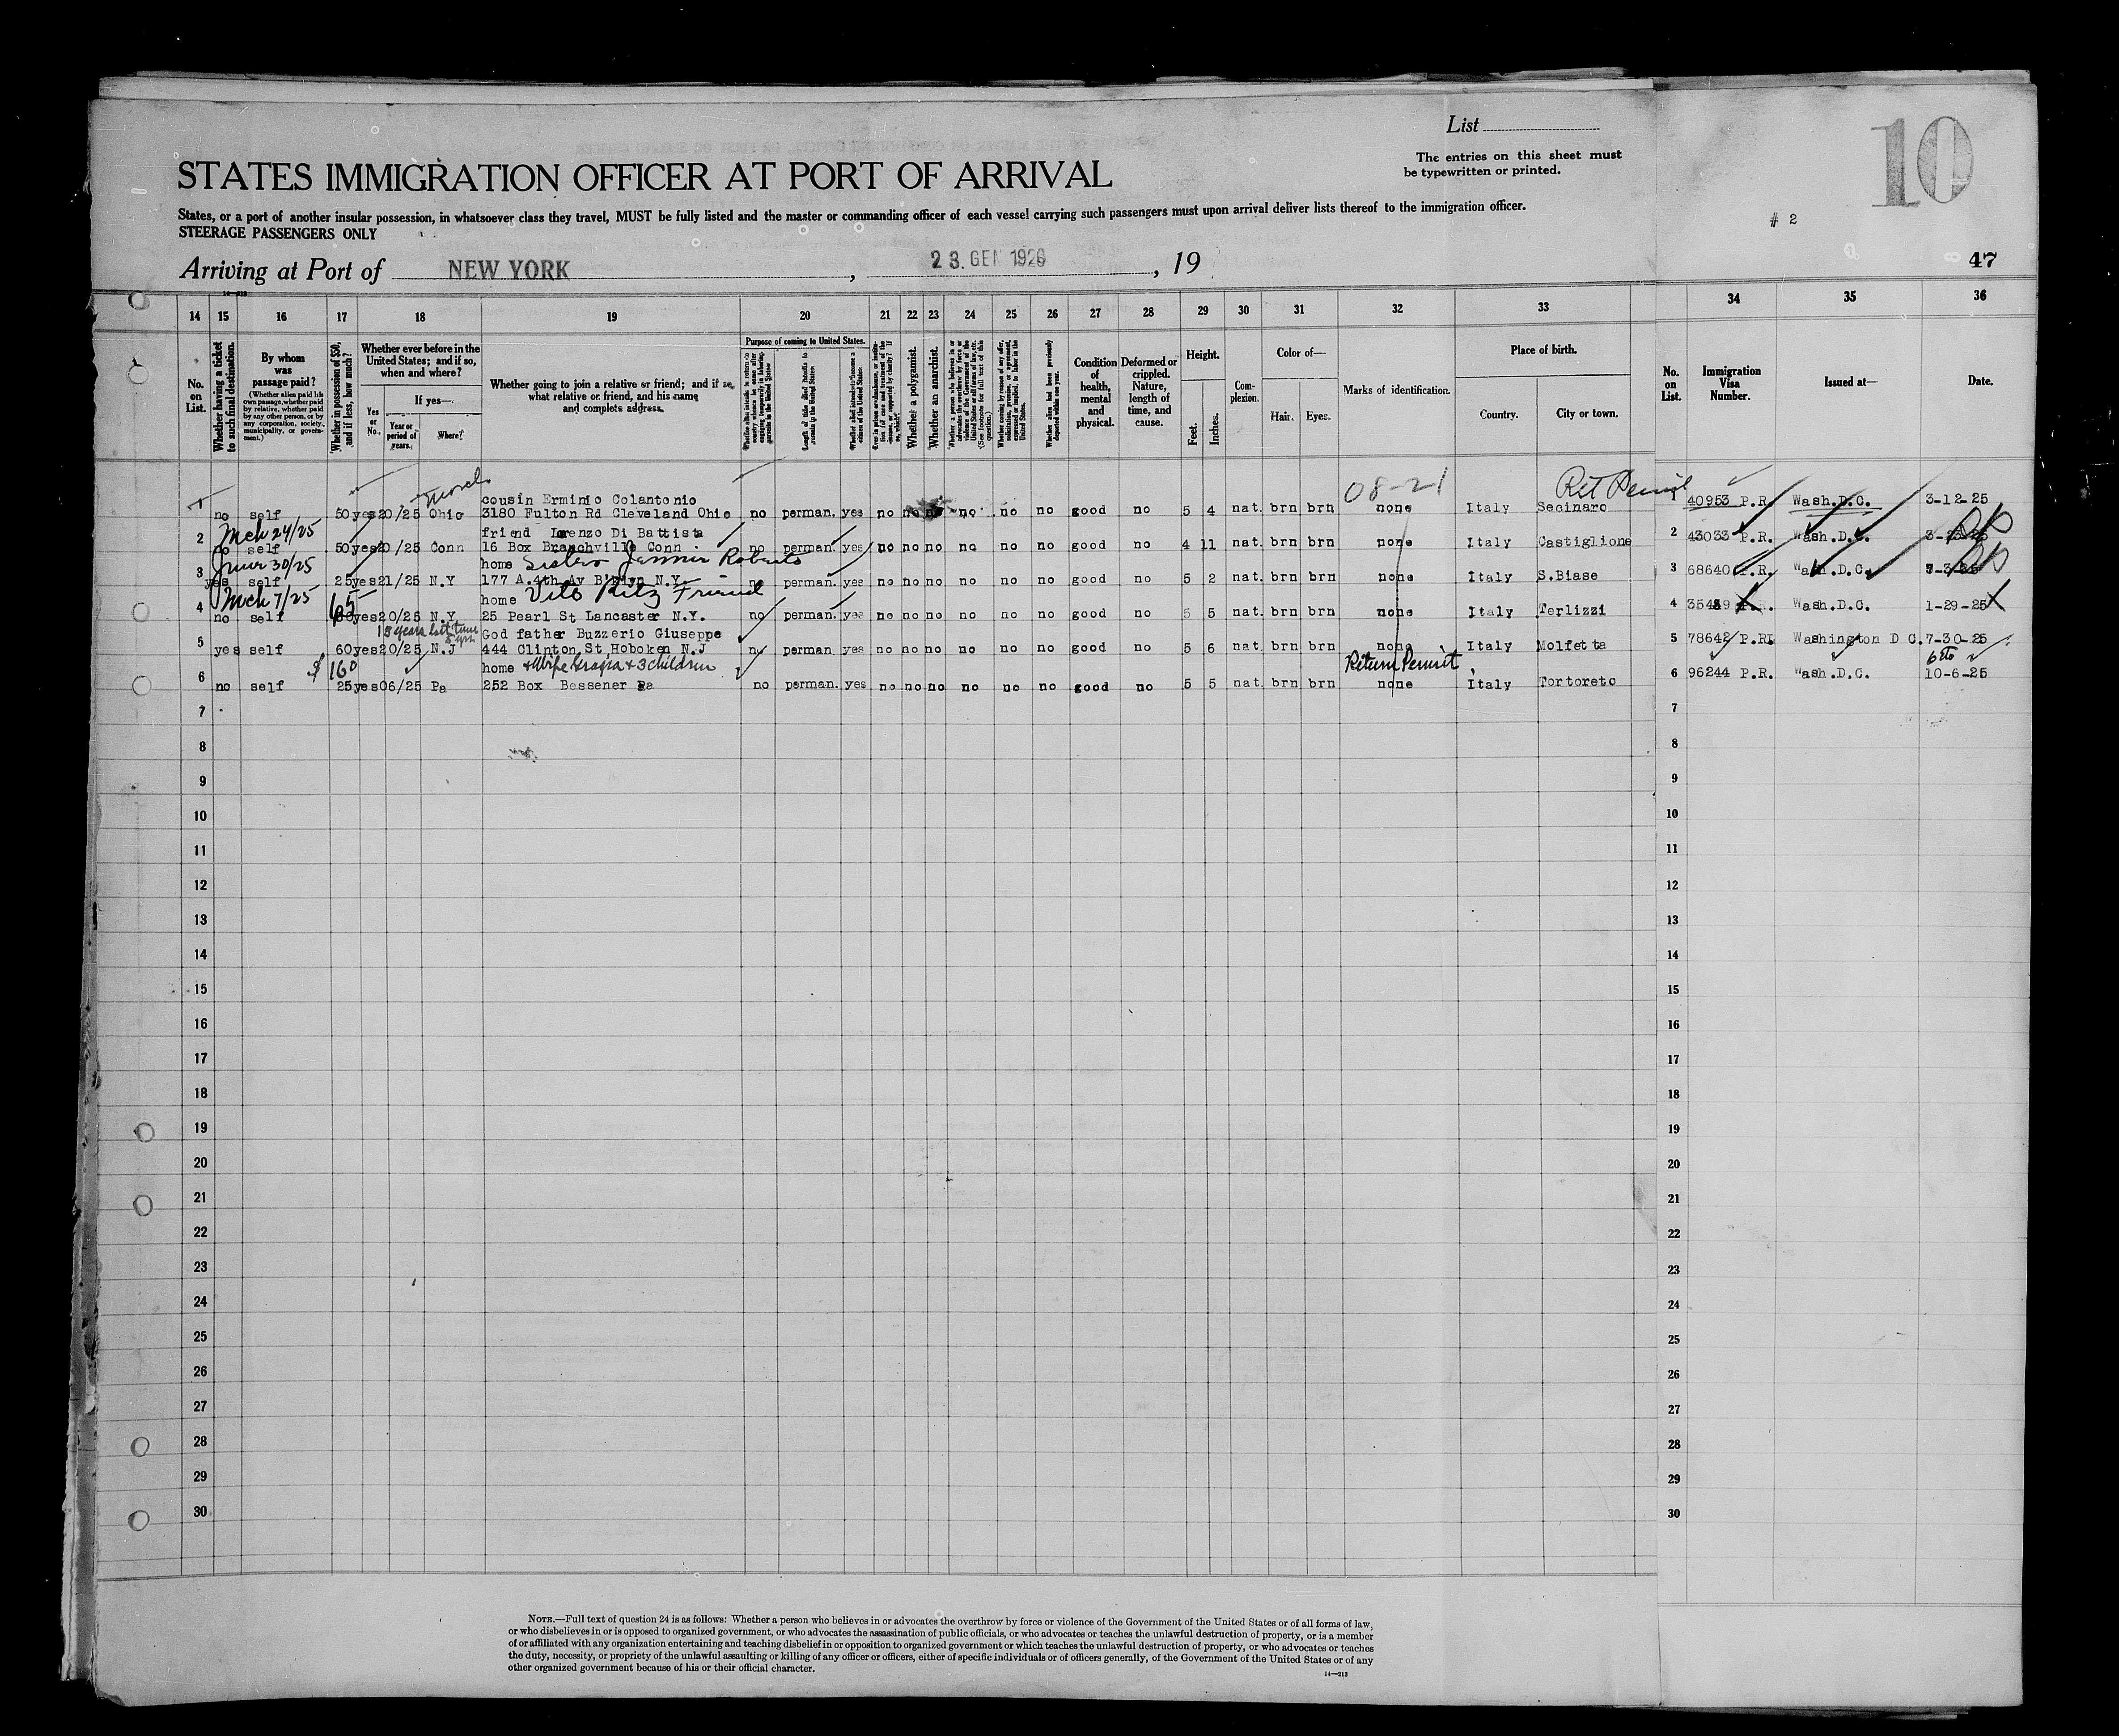 List
The entries on this sheet must
be typewritten or printed.
10
STATES IMMIGRATION OFFICER AT PORT OF ARRIVAL
States, or a port of another insular possession, in whatsoever class they travel, MUST be fully listed and the master or commanding officer of each vessel carrying such passengers must upon arrival deliver lists thereof to the immigration officer.
STEERAGE PASSENGERS ONLY
# 2
Arriving at Port of NEW YORK, 23. GEN 1926, 19
47
14 15 16 17 18 19 20 21 22 23 24 25 26 27 28 29 30 31 32 33 34 35 36
No. on List.
Whether having a ticket to such final destination.
By whom was passage paid?
(Whether alien paid his own passage, whether paid by relative, whether paid by any other person, or by any corporation, society, municipality, or government.)
Whether in possession of $50, and if less, how much?
Whether ever before in the United States; and if so, when and where?
Yes or No.
If yes—
Year or period of years.
Where?
Whether going to join a relative or friend; and if so, what relative or friend, and his name and complete address.
Purpose of coming to United States.
Whether a polygamist.
Whether an anarchist.
Condition of health, mental and physical.
Deformed or crippled. Nature, length of time, and cause.
Height.
Feet.
Inches.
Complexion.
Color of—
Hair.
Eyes.
Marks of identification.
Place of birth.
Country.
City or town.
No. on List.
Immigration Visa Number.
Issued at—
Date.
08-21
Ret Permit
cousin Erminio Colantonio
1 no self 50 yes 20/25 Ohio 3180 Fulton Rd Cleveland Ohio no perman. yes no no no no no no good no 5 4 nat. brn brn none Italy Secinaro 1 40953 P.R. Wash.D.C. 3-12-25
Mch 24/25
friend Lorenzo Di Battista
2 no self 50 yes 20/25 Conn 16 Box Branchville Conn no perman. yes no no no no no no good no 4 11 nat. brn brn none Italy Castiglione 2 43033 P.R. Wash.D.C.
June 30/25
home Sister Jennie Roberts
3 yes self 25 yes 21/25 N.Y 177 A.4th Av B'klyn N.Y. no perman. yes no no no no no no good no 5 2 nat. brn brn none Italy S.Biase 3 68640 P.R. Wash.D.C.
Mch 7/25
65
home Vito Ritz Friend
4 no self yes 20/25 N.Y. 25 Pearl St Lancaster N.Y. no perman. yes no no no no no no good no 5 5 nat. brn brn none Italy Terlizzi 4 Wash.D.C. 1-29-25
15 years last time
God father Buzzerio Giuseppe
5 yes self 60 yes 20/25 N.J 444 Clinton St Hoboken N.J no perman yes no no no no no no good no 5 6 nat. brn brn none Italy Molfetta 5 78642 P.RI Washington D C. 7-30-25
$160
home + Wife Grazia + 3 children
Return Permit
6 no self 25 yes 06/25 Pa 252 Box Bessener Pa no perman. yes no no no no no no good no 5 5 nat. brn brn none Italy Tortoreto 6 96244 P.R. Wash.D.C. 10-6-25
7 7
8 8
9 9
10 10
11 11
12 12
13 13
14 14
15 15
16 16
17 17
18 18
19 19
20 20
21 21
22 22
23 23
24 24
25 25
26 26
27 27
28 28
29 29
30 30
NOTE.—Full text of question 24 is as follows: Whether a person who believes in or advocates the overthrow by force or violence of the Government of the United States or of all forms of law,
or who disbelieves in or is opposed to organized government, or who advocates the assassination of public officials, or who advocates or teaches the unlawful destruction of property, or is a member
of or affiliated with any organization entertaining and teaching disbelief in or opposition to organized government or which teaches the unlawful destruction of property, or who advocates or teaches
the duty, necessity, or propriety of the unlawful assaulting or killing of any officer or officers, either of specific individuals or of officers generally, of the Government of the United States or of any
other organized government because of his or their official character.
14—213